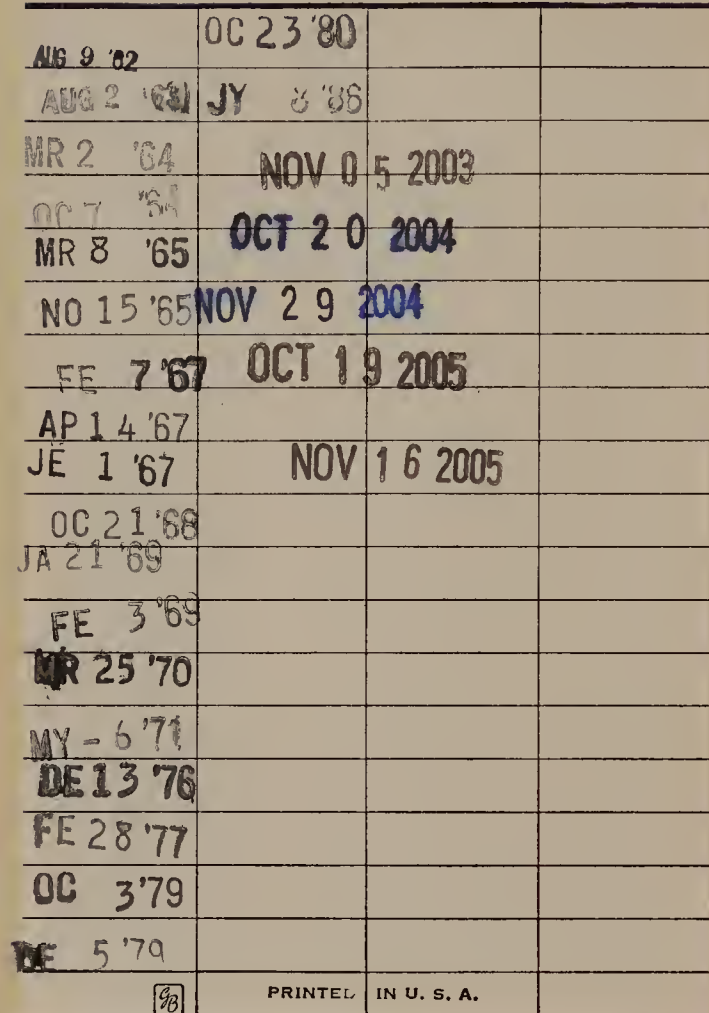 AUG 9 '62
AUG 2 '63
MR 2 '64
OC 7 '64
MR 8 '65
NO 15 '65
FE 7 '67
AP 14 '67
JE 1 '67
OC 21 '68
JA 21 '69
FE 3 '69
MR 25 '70
MY - 6 '71
DE 13 '76
FE 28 '77
OC 3 '79
DE 5 '79
OC 23 '80
JY 8 '86
NOV 05 2003
OCT 20 2004
NOV 29 2004
OCT 19 2005
NOV 16 2005
GB
PRINTED IN U. S. A.